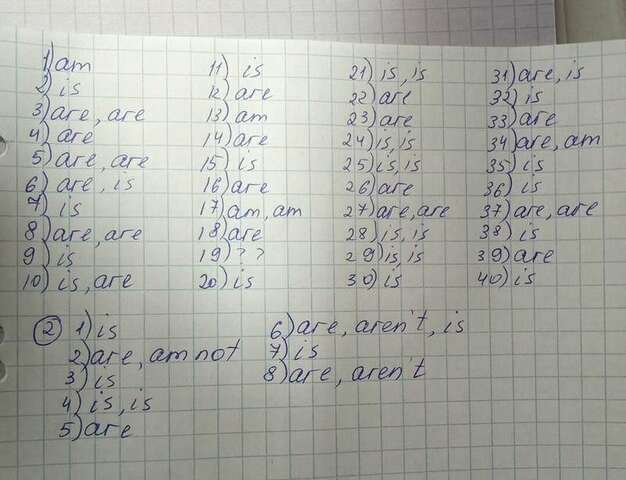 1) am
2) is
3) are, are
4) are
5) are, are
6) are, is
7) is
8) are, are
9) is
10) is, are
11) is
12) are
13) am
14) are
15) is
16) are
17) am, am
18) are
19) ? ?
20) is
21) is, is
22) are
23) are
24) is, is
25) is, is
26) are
27) are, are
28) is, is
29) is, is
30) is
31) are, is
32) is
33) are
34) are, am
35) is
36) is
37) are, are
38) is
39) are
40) is
2 1) is
2) are, am not
3) is
4) is, is
5) are
6) are, aren't, is
7) is
8) are, aren't